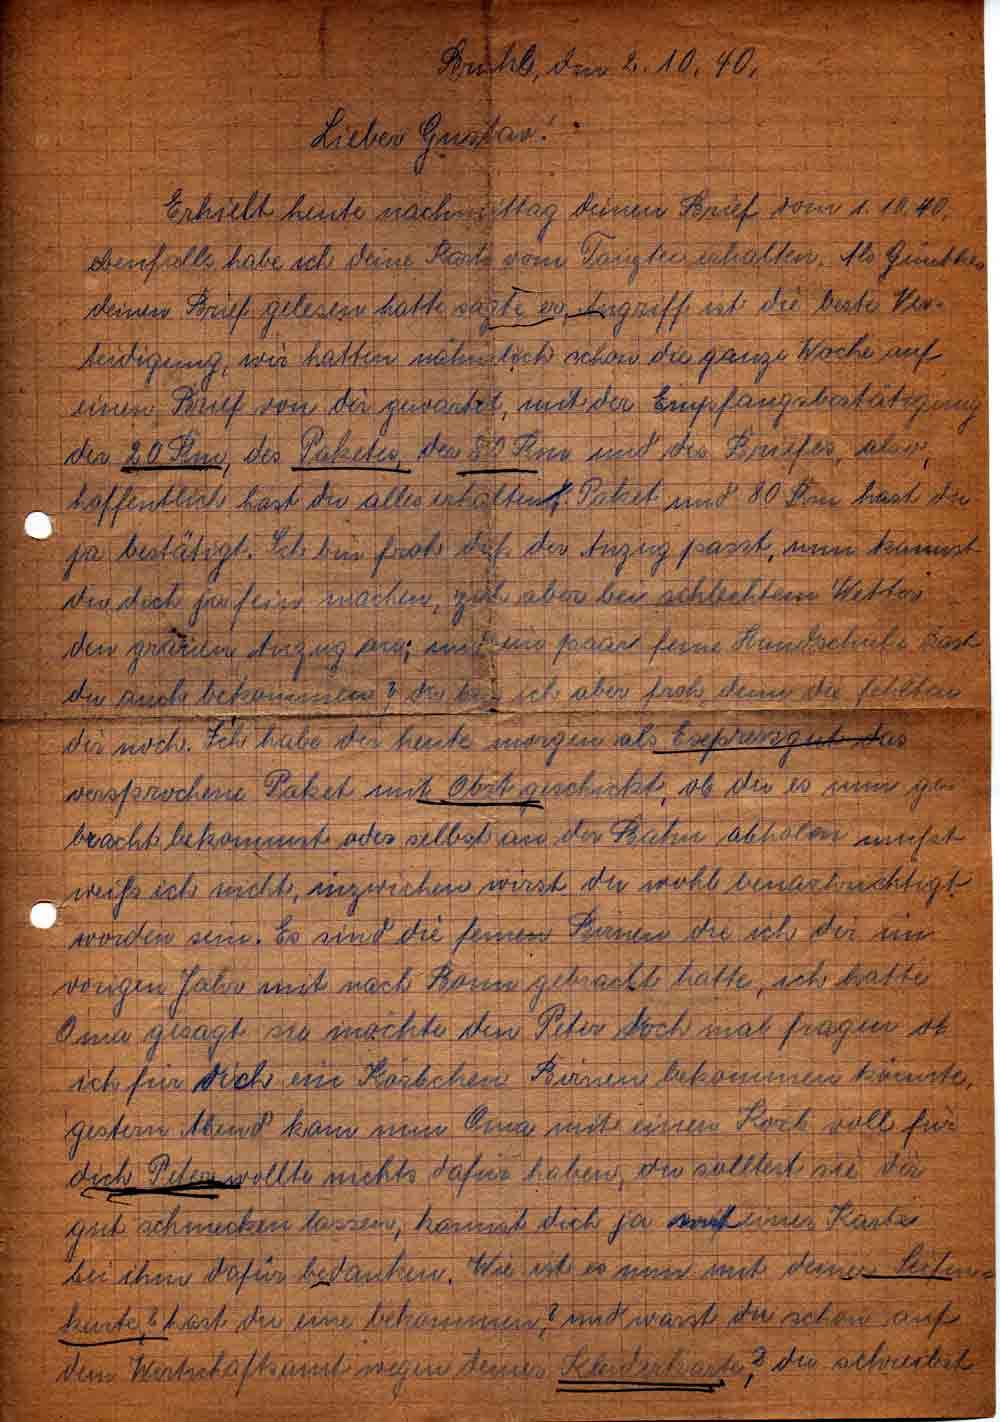 Brühl, den 2.10.40.
Lieber Gustav!
Erhielt heute nachmittag deinen Brief vom 1.10.40.
ebenfalls habe ich deine Karte vom erhalten. Als Günther
deinen Brief gelesen hatte sagte er, Angriff ist die beste Ver-
teidigung, wir hatten nähmlich schon die ganze Woche auf
einen Brief von dir gewartet, mit der Empfangsbestätigung
der 20 Rm, des Paketes, der 80 Rm und des Briefes, also,
hoffentlich hast du alles erhalten. Paket und 80 Rm hast du
ja bestätigt. Ich bin froh daß der Anzug passt, nun kannst
du dich ja fein machen, zieh aber bei schlechtem Wetter
den grauen Anzug an; und ein paar feine Handschuhe hast
du auch bekommen? da bin ich aber froh, denn die fehlten
dir noch. Ich habe dir heute morgen als Expressgut das
versprochene Paket mit Obst geschickt, ob du es nun ge-
bracht bekommst oder selbst an der Bahn abholen mußt
weiß ich nicht, inzwischen wirst du wohl benachrichtigt
worden sein. Es sind die feinen Birnen die ich dir im
vorigen Jahr mit nach Bonn gebracht hatte, ich hatte
Oma gesagt sie möchte den Peter doch mal fragen ob
ich für dich ein Körbchen Birnen bekommen könnte,
gestern Abend kam nun Oma mit einen Korb voll für
dich Peter wollte nichts dafür haben, du solltest sie dir
gut schmecken lassen, kannst dich ja mit einer Karte
bei ihm dafür bedanken. Wie ist es nun mit deiner Seifen-
karte? hast du eine bekommen? und warst du schon auf
dem Wirtschaftsamt wegen deiner Kleiderkarte? du schreibst